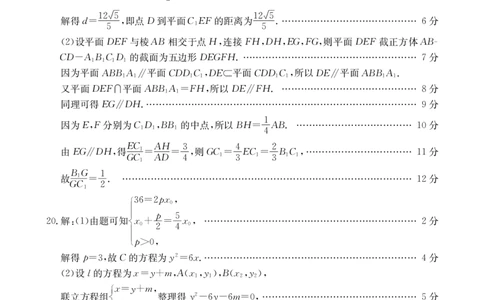 解得d=12√5/5,即点D到平面C₁EF的距离为12√5/5. …… 6分
(2)设平面DEF与棱AB相交于点H,连接FH,DH,EG,FG,则平面DEF截正方体AB-
CD-A₁B₁C₁D₁的截面为五边形DEGFH. …… 7分
因为平面ABB₁A₁∥平面CDD₁C₁,DE⊂平面CDD₁C₁,所以DE∥平面ABB₁A₁.
又平面DEF∩平面ABB₁A₁=FH,所以DE∥FH. …… 8分
同理可得EG∥DH. …… 9分
因为E,F分别为C₁D₁,BB₁的中点,所以BH=1/4AB. …… 10分
由EG∥DH,得EC₁/GC₁=AH/AD=3/4,则GC₁=4/3EC₁=2/3B₁C₁, …… 11分
故B₁G/GC₁=1/2. …… 12分
20.解:(1)由题可知{36=2px₀,
x₀+p/2=5/4x₀, …… 2分
p>0,
解得p=3,故C的方程为y²=6x. …… 4分
(2)设l的方程为x=y+m,A(x₁,y₁),B(x₂,y₂),
联立方程组{x=y+m, 整理得y²-6y-6m=0, …… 5分